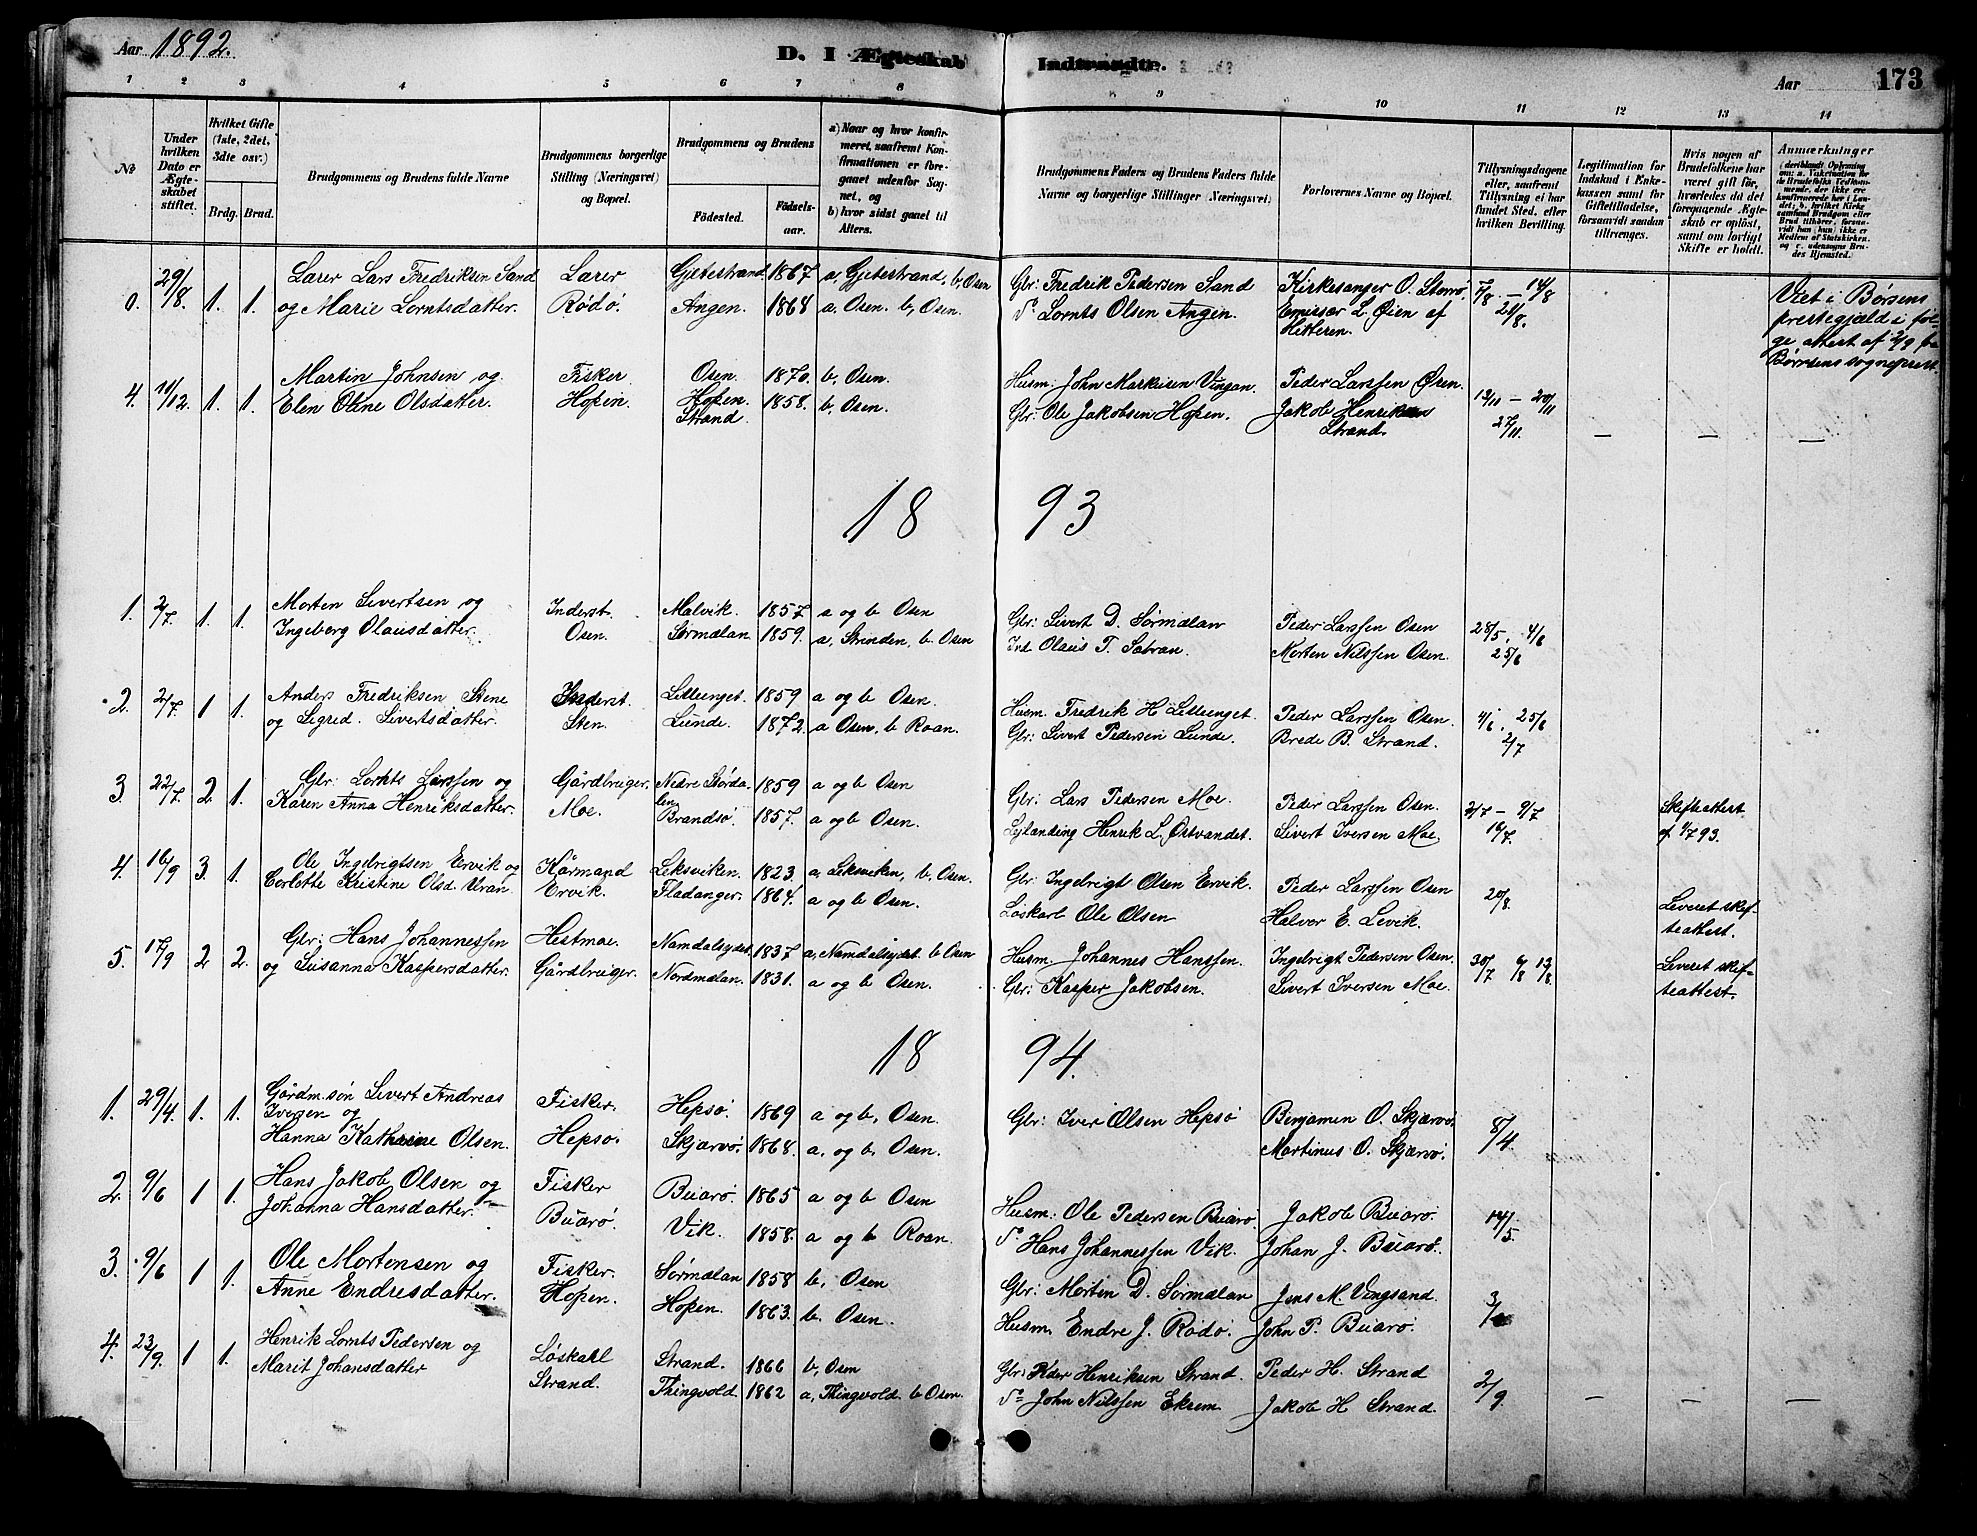 Aar 1892.
D. I Ægteskab Indtraadte.
Aar 173
1 2 3 4 5 6 7 8 9 10 11 12 13 14
No
Under hvilken Dato er Ægteskabet stiftet.
Hvilket Gifte (1ste, 2det, 3die osv.)
Brdg. Brud.
Brudgommens og Brudens fulde Navne
Brudgommens borgerlige Stilling (Næringsvei) og Bopæl.
Brudgommens og Brudens
Födested.
Födselsaar.
a) Naar og hvor konfirmeret, saafremt Konfirmationen er foregaaet udenfor Sognet, og
b) hvor sidst gaaet til Alters.
Brudgommens Faders og Brudens Faders fulde Navne og borgerlige Stillinger (Næringsvei)
Forlovernes Navne og Bopæl.
Tillysningsdagene eller, saafremt Tillysning ei har fundet Sted, efter hvilken Bevilling.
Legitimation for Indskud i Enkekassen samt for Giftetilladelse, forsaavidt saadan tiltrænges.
Hvis nogen af Brudefolkene har været gift för, hvorledes da det foregaaende Ægteskab er oplöst, samt om lovligt Skifte er holdt.
Anmærkninger
0. 29/8. 1. 1. Lærer Lars Fredriksen Sand Lærer Gjetestrand 1867 a, Gjetestrand, b, Osen Gbr: Fredrik Pedersen Sand Kirkesanger O. Storrø. 7/8 — 14/8
og Marie Lorntsdatter. Rödö. Angen. 1868 a. Osen. b, Osen. Lornts Olsen Angen. Emissær L. Øien af Hitteren. 21/8.
Viet i Børsens prestegjæld i følge attest af 2/9 fra Børsens sogneprest.
4. 11/12. 1. 1. Martin Johnsen og Fisker Osen. 1870. b, Osen. Husm. John Markusen Vingan. Peder Larssen Osen. 13/11 — 20/11
Elen Oline Olsdatter. Hopen. Hopen. 1858. b, Osen. Gbr: Ole Jakobsen Hopen. Jakob Henriksen 27/11. — — —
Strand. Strand.
18 93
1. 2/7 1. 1. Morten Sivertsen og Inderst. Malvik. 1857 a og b Osen Gbr: Sivert D. Sörmælan Peder Larssen Osen 28/5, 4/6
Ingeborg Olausdatter. Osen. Sörmælan 1859. a, Strinden, b. Osen Ind. Olaus T. Sætran. Morten Nilssen Osen. 25/6
2. 2/7. 1 1. Anders Fredriksen Stene Inderst. Lilleenget. 1859 a og b Osen. Husm. Fredrik H Lilleenget. Peder Larssen Osen. 4/6 25/6
og Sigrid Sivertsdatter. Sten. Sunde. 1872. a Osen. b Roan. Gbr: Sivert Pedersen Sunde. Brede B. Strand. 2/7
3. 22/7. 2. 1. Gbr: Lornts Larssen og Gårdbruger. Nedre Stördalen 1859 a og b Osen Gbr: Lars Pedersen Moe. Peder Larssen Osen. 2/7 — 9/7 Skifteattest
Karen Anna Henriksdatter. Moe. Brandsö. 1857. a og b Osen. Henrik L. Østvandet. Sivert Iversen Moe. 16/7. af 1/7 93.
4. 16/9 3. 1. Ole Ingebrigtsen Ervik og Kårmand Leksviken. 1823. a. Leksviken, b. Osen. Gbr: Ingebrigt Olsen Ervik. Peder Larssen Osen 20/8.
Corlotte Kristine Olsd. Uran. Ervik. Fladanger. 1864. a og b Osen. Löskarl Ole Olsen Halver E. Levik. Leveret skifteattest.
5. 17/9 2 2. Gbr: Hans Johannessen Hestmoe. Namdalseidet. 1837 a, Namdalseidet b Osen Husm. Johannes Hanssen. Ingebrigt Pedersen Osen. 30/7 6/8 13/8. Leveret skifteattest.
og Susanna Kaspersdatter. Gårdbruger. Nordmælan. 1831. a og b Osen. Gbr: Kasper Jakobsen. Sivert Iversen Moe.
18 94.
1. 29/4. 1. 1. Gårdm.sön Sivert Andreas Fisker. Hepsö. 1869 a og b, Osen. Gbr: Iver Olsen Hepsö Benjamin O. Skjærvö. 8/4
Iversen og
Hanna Kathrine Olsen. Hepsö. Skjærvö. 1868. a. og b. Osen. Martinus O. Skjærvö.
2. 9/6 1 1. Hans Jakob Olsen og Fisker Buarö. 1865 a og b Osen Husm. Ole Pedersen Buarö Jakob Buarö. 14/5.
Johanna Hansdatter. Buarö. Vik. 1858. a og b Roan. Hans Johannessen Vik. Johan J. Buarö.
3. 9/6 1 1. Ole Mortensen og Fisker. Sörmælan 1858 b, Osen Gbr: Morten D. Sörmælan Jens M. Vingsand. 3/
Anne Endresdatter. Hopen. Hopen. 1863. b. Osen. Husm. Endre J. Rödö. John P. Buarö.
4. 23/9. 1 1. Henrik Lornts Pedersen og Löskarl Strand. 1866 b, Osen Gbr: Peder Henriksen Strand. Peder H. Strand 2/9.
Marit Johansdatter Strand. Thingvold. 1862 a, Thingvold b Osen. John Nilssen Ekrem Jakob H Strand. — — —